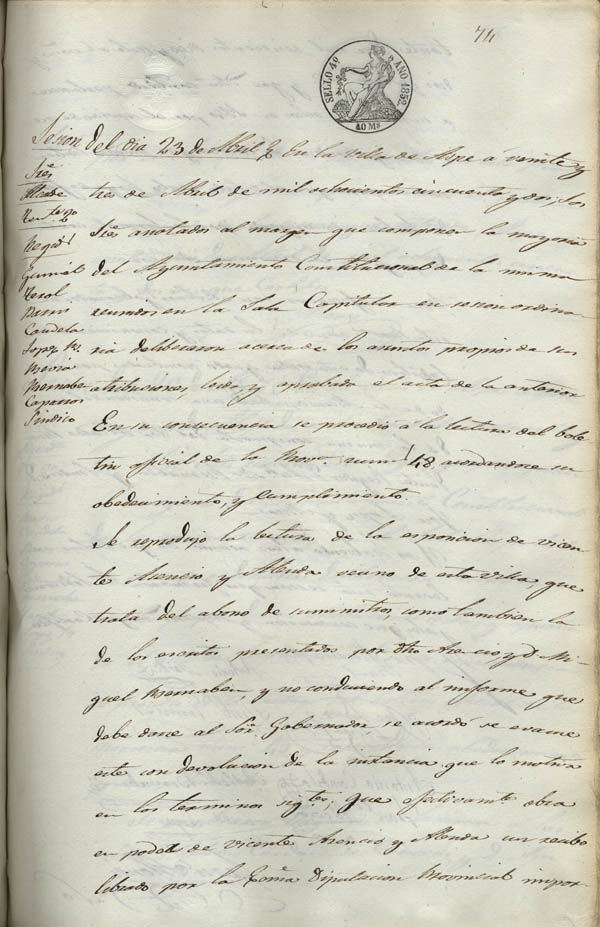 74
SELLO 4º AÑO 1852.
40 Ms
Sesion del dia 23 de Abril
En la villa de Aspe á veinte y
tres de Abril de mil ochocientos cincuenta y dos; los
Sres. anotados al margen que componen la mayoria
del Ayuntamiento Constitucional de la misma
reunidos en la Sala Capitular en sesion ordina
ria deliberaron acerca de los asuntos propios de sus
atribuciones, leida, y aprobada el acta de la anterior
Sres
Alcalde
Tente 2º
Regid.s
Cañizares
Candela
Lopez
Bernabeu
Caparros
Sindico
En su consecuencia se procedió á la lectura del bole
tin oficial de la Prov.a num.º 48 acordandose su
obedecimiento, y cumplimiento.
Se reprodujo la lectura de la esposicion de vicen
te Asencio y Alenda vecino de esta villa que
trata del abono de suministros, como tambien la
de los escritos presentados por dho Asencio y D. Mi-
guel Bernabeu, y no conduciendo al informe que
debe darse al Sor. Gobernador, se acordó se evacue
este con devolucion de la instancia que lo motiva
en los terminos sigtes; Que efectivamte obra
en poder de Vicente Asencio y Alenda un recibo
librado por la Exma Diputacion Provincial impor-